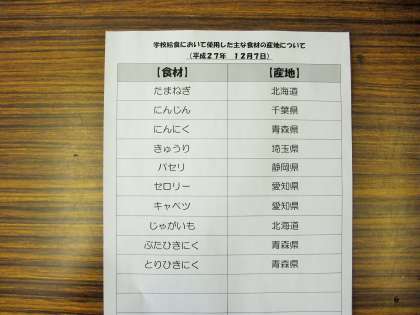 学校給食において使用した主な食材の産地について
（平成２７年　１２月７日）
【食材】　【産地】
たまねぎ　北海道
にんじん　千葉県
にんにく　青森県
きゅうり　埼玉県
パセリ　静岡県
セロリー　愛知県
キャベツ　愛知県
じゃがいも　北海道
ぶたひきにく　青森県
とりひきにく　青森県